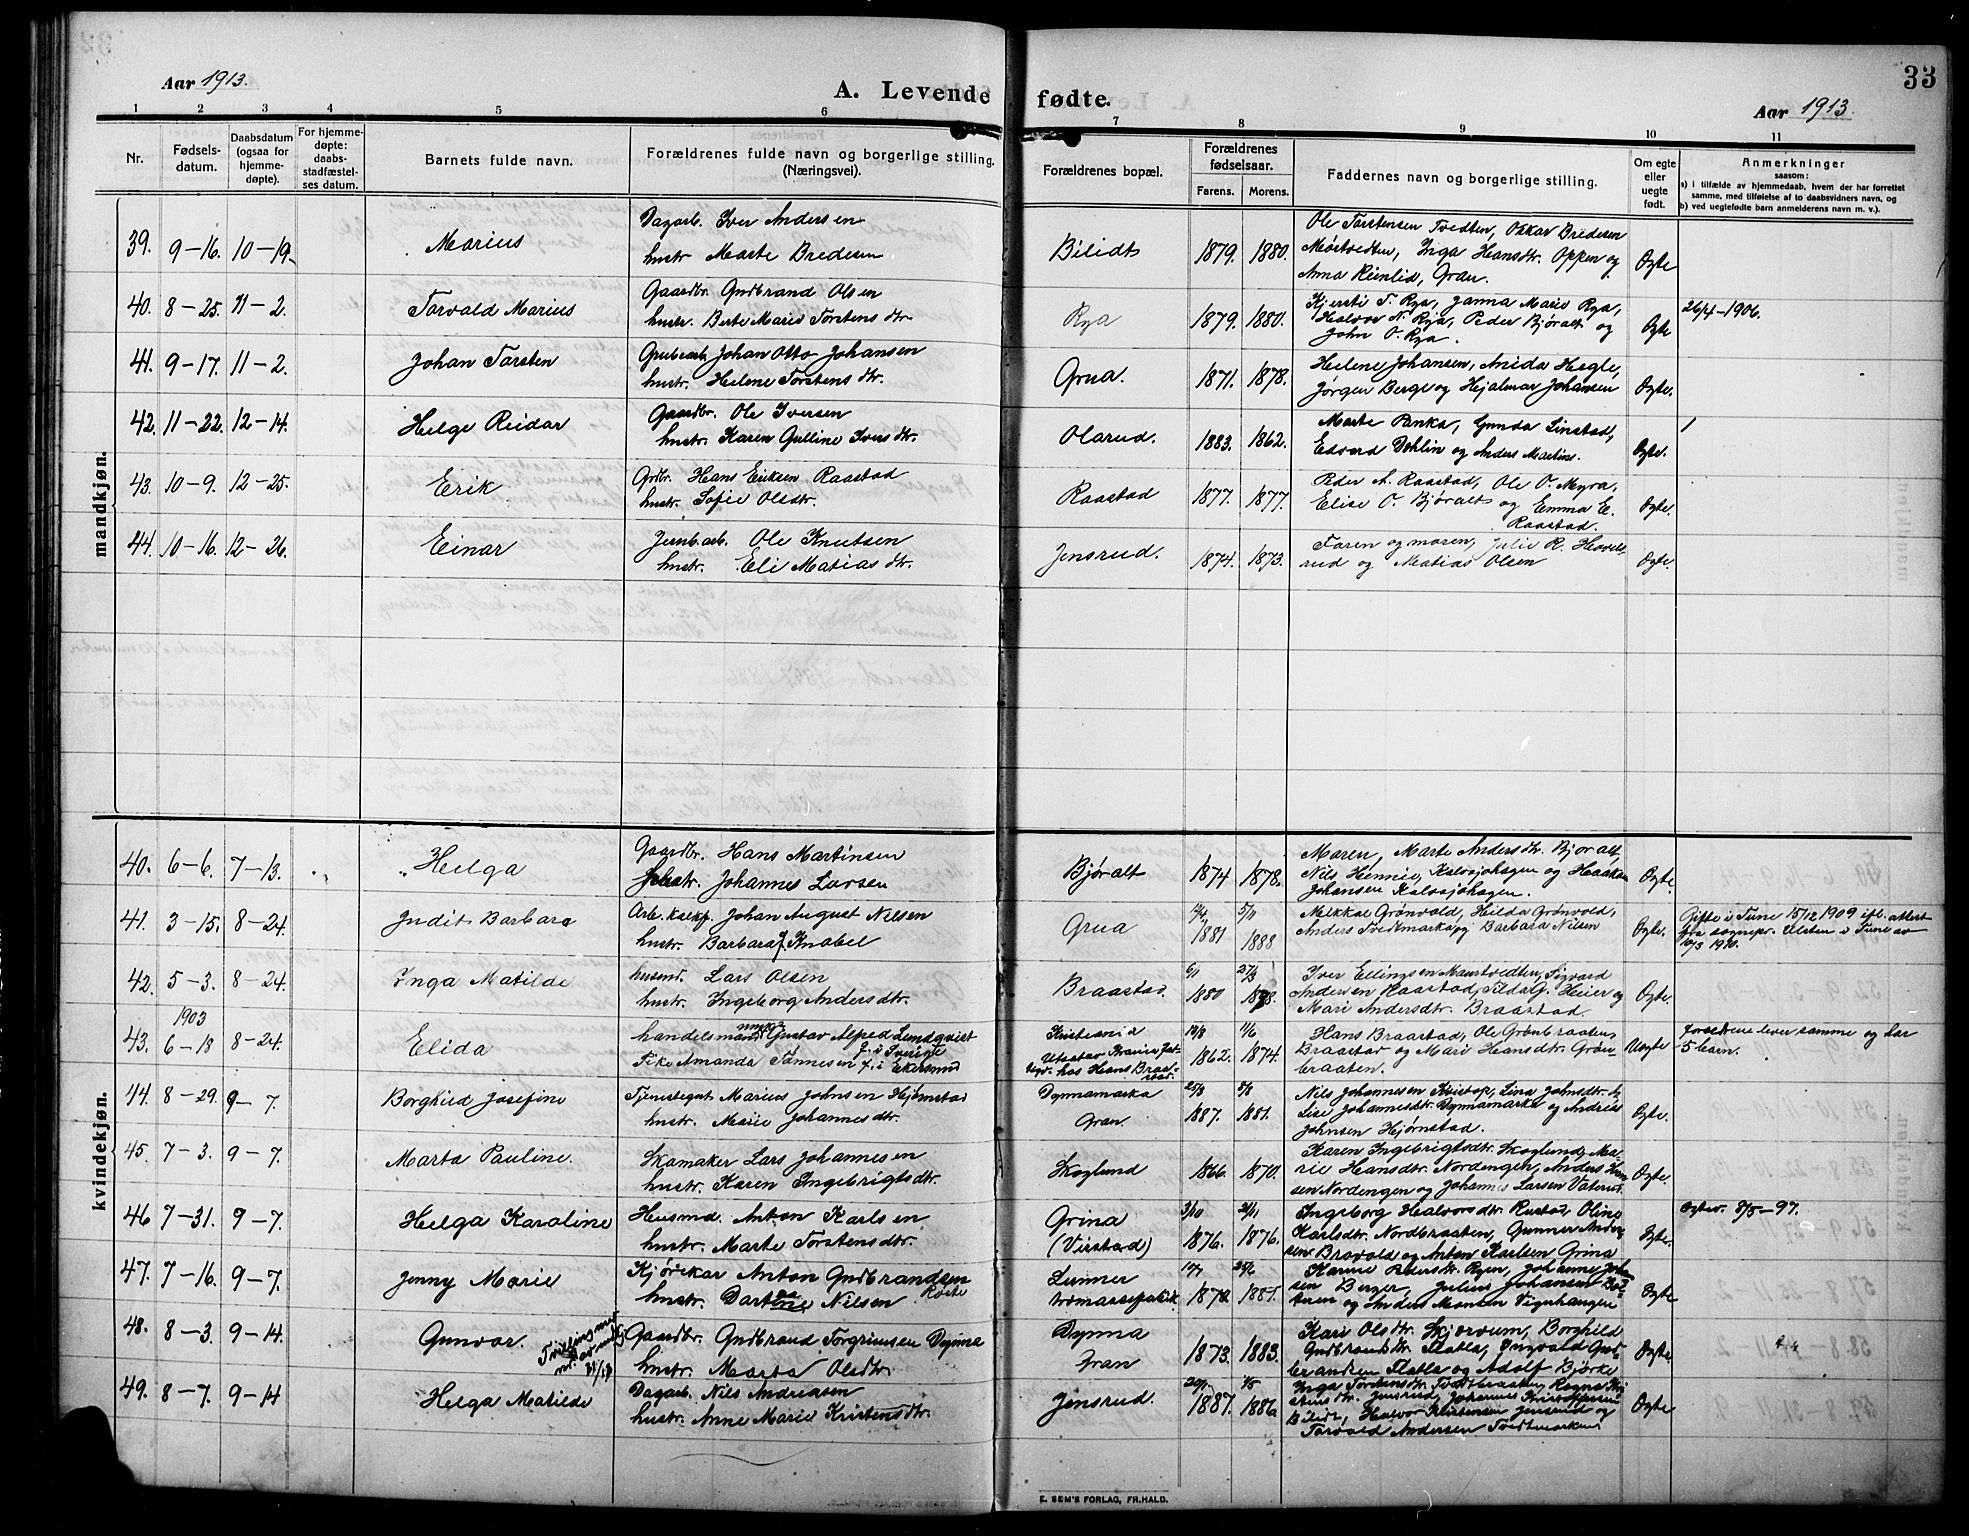 Aar 1913.
A. Levende fødte.
Aar 1913.
33
1 2 3 4 5 6 7 8 9 10 11
Nr.
Fødsels-
datum.
Daabsdatum
(ogsaa for
hjemme-
døpte).
For hjemme-
døpte:
daabs-
stadfæstel-
ses datum.
Barnets fulde navn.
Forældrenes fulde navn og borgerlige stilling.
(Næringsvei).
Forældrenes bopæl.
Forældrenes
fødselsaar.
Farens. Morens.
Faddernes navn og borgerlige stilling.
Om egte
eller
uegte
født.
Anmerkninger
saasom:
a) i tilfælde av hjemmedaab, hvem der har forrettet
samme, med tilføielse af to daabsvidners navn, og
b) ved uegtefødte barn anmelderens navn m. v.).
mandkjøn.
39. 9-16. 10-19. Marius
Dagarb. Iver Andersen
hustr Marte Bredesen
Bilidt 1879. 1880.
Ole Torstensen Tvedten, Oskar Bredesen
Mørtvedten, Inga Hansdtr. Oppen og
Anna Reinlid, Gran.
Egte
40. 8-25. 11-2. Torvald Marius
Gaardbr. Gudbrand Olsen
hustr. Berte Marie Torstensdtr
Rya 1879. 1880.
Kjersti T. Rya, Janna Marie Rya,
Halvor N. Rya, Peder Bjøralt og
John O. Rya.
Egte
26/4-1906.
41. 9-17. 11-2. Johan Torsten
Grubearb. Johan Otto Johansen
hustr. Helene Torstensdtr.
Grua. 1871. 1878.
Helene Johansen, Anida Hegle,
Jørgen Berge og Hjalmar Johansen
Egte.
42. 11-22. 12-14. Helge Reidar
Gaardbr. Ole Iversen
hustr. Karen Gulline Iversdtr.
Olarud. 1883. 1862.
Marte Panka, Gunda Linstad,
Edvard Dehlin og Anders Martins.
Egte.
43. 10-9. 12-25. Erik
Grdbr. Hans Eriksen Raastad
hustr. Sofie Olsdtr.
Raastad 1877. 1877.
Peder A. Raastad, Ole O. Myra,
Elise O. Bjøralt og Emma E.
Raastad.
Egte.
44. 10-16. 12-26. Einar
Jernb.arb. Ole Knutsen
hustr. Eli Matiasdtr.
Jensrud. 1874. 1873.
Faren og moren, Julie R. Hovels
rud og Matias Olsen
Egte.
kvindekjøn.
40. 6-6. 7-13. Helga
Gaardbr. Hans Martinsen
hustr. Johannes Larsen
Bjøralt 1874 1878.
Maren, Marte Andersdtr. Bjøralt,
Nils Hennie, Kalvsjøhagen og Haakon
Johansen Kalvsjøhagen.
Egte.
41. 3-15. 8-24. Judit Barbara
Arb. Johan August Nilsen
hustr. Barbara J. Knabel
Grua 1881 5/11 1888
Grønvold, Hilda Grønvold,
Anders Tvedtmark og Barbara Nilsen
Egte.
Gifte i Tune 15/12 1909 ifl. attest
fra sognepr. Ulsten i Tune av
10/3 1910.
42. 5-3. 8-24. Inga Matilde
husmd. Lars Olsen
hustr. Ingeborg Andersdtr.
Braastad. 6/11 1880 27/3 1878.
Iver Ellingsen Maurtvedten, Sigvard
Andersen Raastad, Tilda G. Heier og
Mari Andersdtr. Braastad.
Egte.
1903
43. 6-18 8-24. Elida
handelsmand Gustav Alfred Lundqvist
f. i Sverige
Fike Amanda Tønnesen f. i Ekersund
Kristiania
hos Hans Braa-
stad.
19/8 1862. 1/6 1874.
Hans Braastad, Ole Grønbraaten,
Braastad og Mari Hansdtr. Grøn
braaten.
Uegte
Forældrene lever samme og har
5 barn.
44. 8-29. 9-7. Borghild Josefine
Tjenstegut Marius Johnsen Hjørnstad
hustr. Marie Johannesdtr.
Dynnamarka
Gran.
25/8 1887. 5/8 1881.
Nils Johannesen, Lina Johnsdtr.
Lise Johannesdtr. Dynnamarka og Andreas
Johnsen Hjørnstad.
Egte.
45. 7-3. 9-7. Marta Pauline.
Skomaker Lars Johannesen
hustr. Karen Ingebrigtsdtr.
Skoglund 1866. 1870.
Karen Ingebrigtsdtr. Skoglund, Ma-
rie Hansdtr. Nordengen, Anders Han
sen Nordengen og Johannes Larsen Vaterud.
Egte.
46 7-31. 9-7. Helga Karoline
Husmd. Anton Karlsen
hustr. Marte Torstensdtr.
Grina
(Virstad)
3/10 1876. 21/11 1876.
Ingeborg Halvorsdtr. Rustad, Oline
Karlsdtr. Nordbraaten, Gunner Ander-
sen Bravold og Anton Karlsen Grina
Egte.
5/5-97.
47. 7-16. 9-7. Jenny Marie
Kjørekar Anton Gudbrandsen
Roste
hustr. Dartine Nilsen
Lunner
tremassefabrik
1872 25/6 1881.
Karine Pedersdtr. Ryen, Johanne Johan
sen Berger, Julius Johansen
og Anders Monsen Vignhaugen
Egte
48. 8-3. 9-14. Gunvor. Tvilling med
Gaardbr. Gudbrand Torgrimsen Dynna
hustr. Marta Olsdtr.
Dynna
Gran
1873. 1883.
Kari Olsdtr. Skjervum, Borghild
Gudbrandsdtr. Flatla, Ingvald Gud
brandsen Flatla og Adolf Bjørke
Egte
49. 8-7. 9-14 Helga Matilde
Dagarb. Nils Andreasen
hustr. Anne Marie Kristensdtr.
Jensrud. 1887. 1/5 1886
Inga Torstensdtr. Tvedtbraaten, Ragna Kri
stensdtr. Jensrud, Johannes Kristoffersen
Bilidt, Halvor Kristensen Jensrud og
Torvald Andersen Tvedtmarken.
Egte
E. SEM'S FORLAG, FR.HALD.